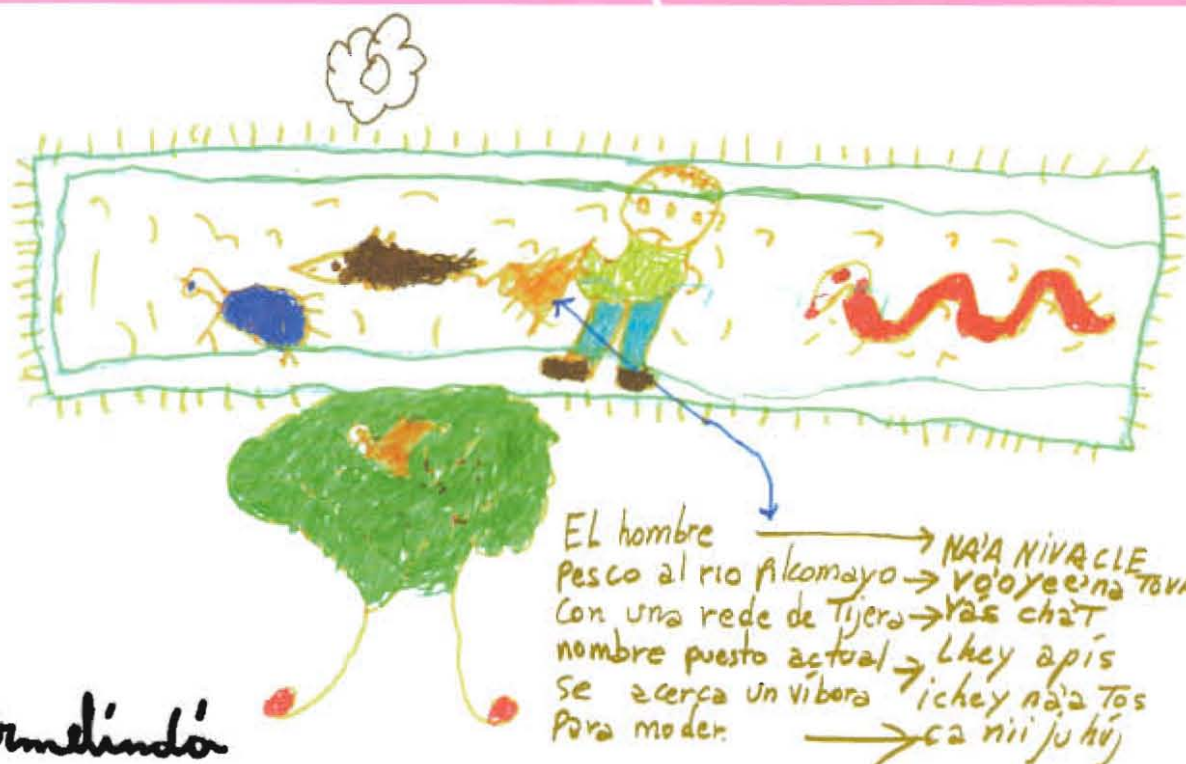 El hombre → NA'A NIVACLE
pesco al rio Pilcomayo → vo'oyee'na TOVA
Con una rede de Tijera → Yás chaT
nombre puesto actual → Lhey apís
se acerca un víbora ichey na'a Tos
Para moder. → ca nii ju húj